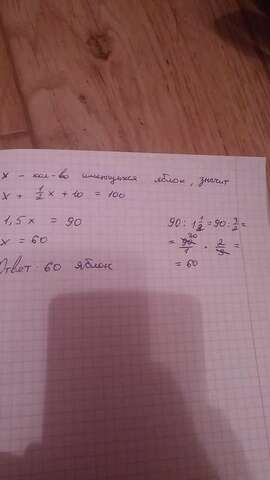 x - кол-во имеющихся яблок, значит
x + 1/2 x + 10 = 100
1,5x = 90
x = 60
Ответ: 60 яблок
90 : 1 1/2 = 90 : 3/2 =
= 90/1 · 2/3 =
30
= 60